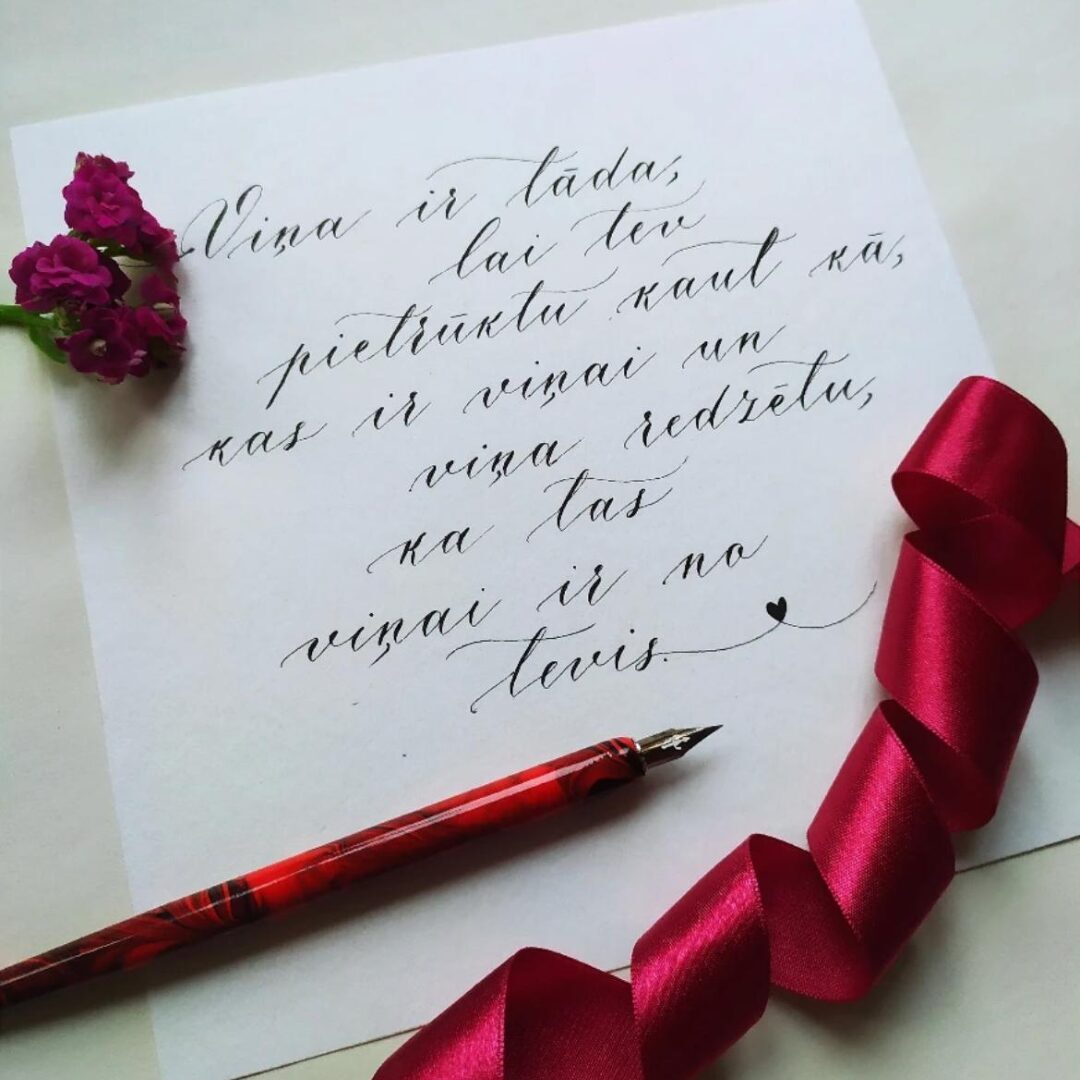 Viņa ir tāda,
lai tev
pietrūktu kaut kā,
kas ir viņai un
viņa redzētu,
ka tas
viņai ir no
tevis.